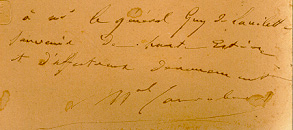 à m^r le général Guy de
souvenir de haute estime
et d'affectueux dévouement
M^al Canrobert